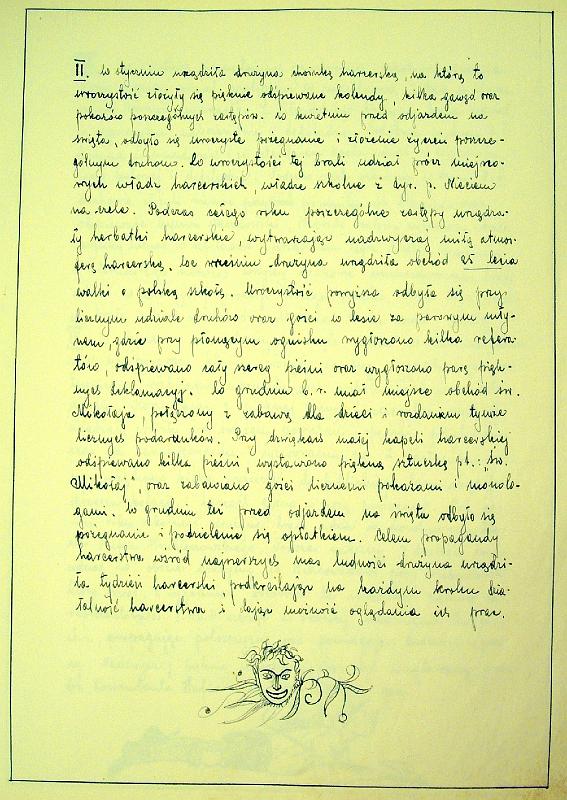 II. W styczniu urządziła drużyna choinkę harcerską, na którą to
uroczystość złożyły się pięknie odśpiewane kolendy, kilka gawęd oraz
pokazów poszczególnych zastępów. W kwietniu przed odjazdem na
święta, odbyło się uroczyste pożegnanie i złożenie życzeń poszcze-
gólnym druhom. W uroczystości tej brali udział prócz miejsco-
wych władz harcerskich, władze szkolne z dyr. p.
na czele. Podczas całego roku poszczególne zastępy urządza-
ły herbatki harcerskie, wytwarzając nadzwyczaj miłą atmos-
ferę harcerską. We wrześniu drużyna urządziła obchód 25 lecia
walki o polską szkołę. Uroczystość powyższa odbyła się przy
licznym udziale druhów oraz gości w lesie za parowym mły-
nem, gdzie przy płonącym ognisku wygłoszono kilka refera-
tów, odśpiewano cały szereg pieśni oraz wygłoszono parę pięk-
nych deklamacyj. W grudniu b. r. miał miejsce obchód św.
Mikołaja, połączony z zabawą dla dzieci i rozdaniem tymże
licznych podarunków. Przy dźwiękach małej kapeli harcerskiej
odśpiewano kilka pieśni, wystawiono piękną sztuczkę p.t.: „Św.
Mikołaj", oraz zabawiano gości licznemi pokazami i monolo-
gami. W grudniu też przed odjazdem na święta odbyło się
pożegnanie i podzielenie się opłatkiem. Celem propagandy
harcerstwa wśród najszerszych mas ludności drużyna urządzi-
ła tydzień harcerski, podkreślając na każdym kroku dzia-
łalność harcerstwa i dając możność oglądania ich prac.